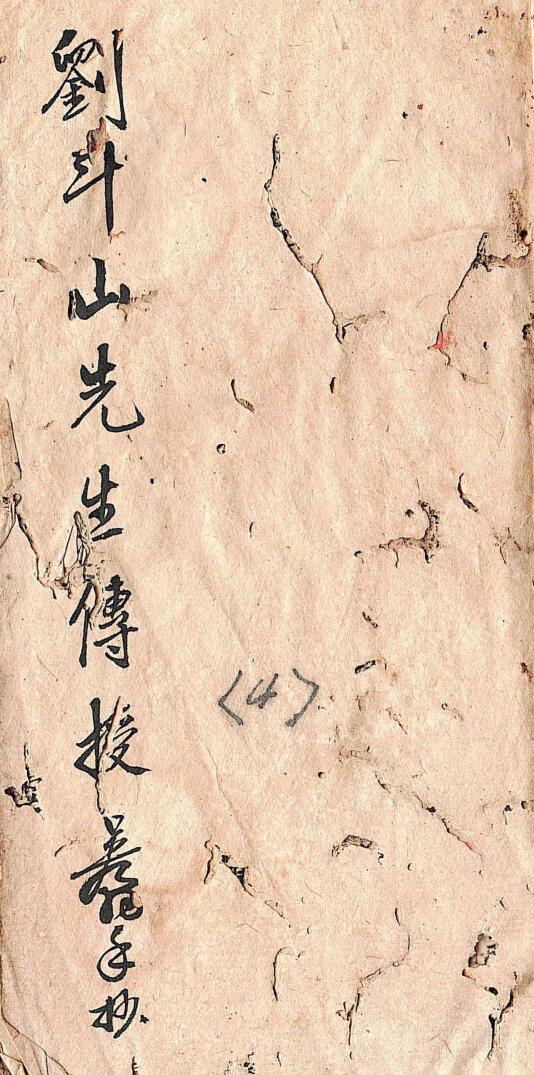 劉斗山先生傳授手抄
〈4〉